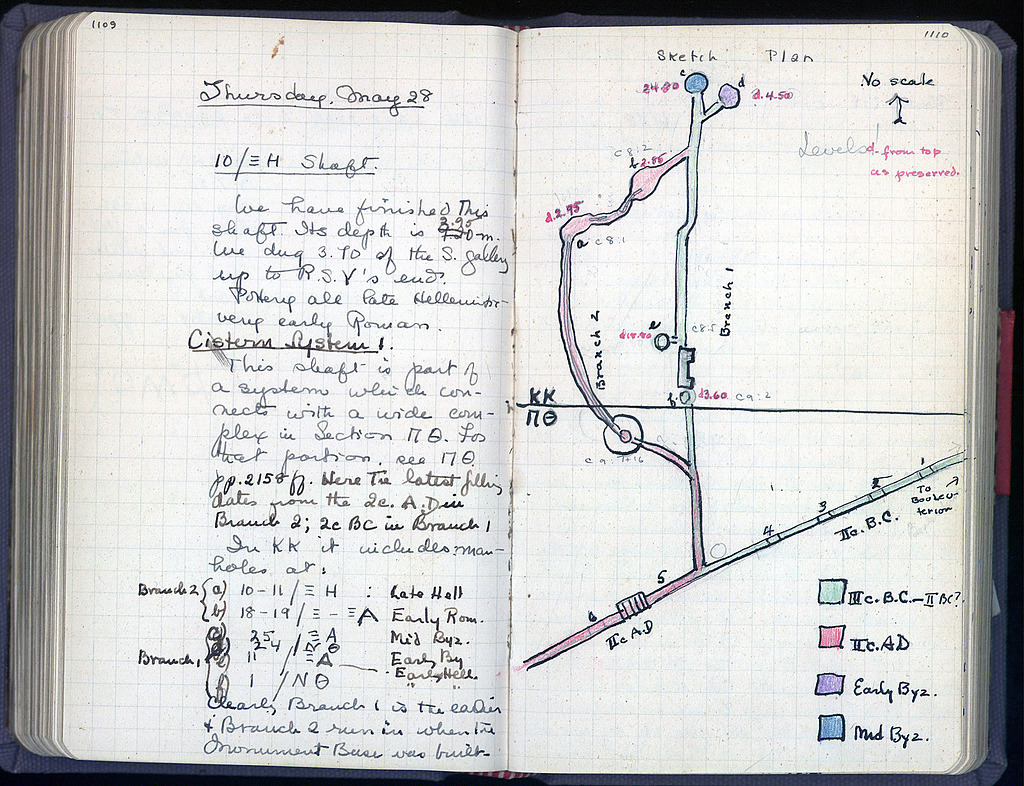 1109
Thursday, May 28
10/Ξ H Shaft.
We have finished This
shaft. Its depth is 3.90 m.
We dug 3.70 of the S. gallery
up to R.S.V's end.
Pottery all late Hellenistic-
very early Roman.
Cistern System 1.
This shaft is part of
a system which con-
nects with a wide com-
plex in Section ΠΘ. For
that portion, see ΠΘ
pp. 2158 ff. Here the latest filling
dates from the 2c. A.D in
Branch 2; 2c BC in Branch 1
In KK it includes man-
holes at:
Branch 2 { a) 10-11/Ξ H : Late Hell
b) 18-19/Ξ-ΞA Early Rom.
25/ΞA Mid Byz.
24/ΝΘ
Branch 1 11/ΞA Early By
1/ΝΘ Early Hell.
Clearly Branch 1 is the earlier
& Branch 2 run in when the
Monument Base was built.
1110
Sketch Plan
No scale
Levels d. from top
as preserved.
c
24.80
d
d.4.50
c8:2
b 2.85
d.2.95
a
c8:1
Branch 2
Branch 1
e
c8:5
f
d3.60
c9:2
KK
ΠΘ
c9:7+16
1
2
3
4
5
6
To
Bouleu-
terion
IIc. B.C.
IIc A.D
IIIc. B.C.–II BC?
IIc. AD
Early Byz.
Mid Byz.